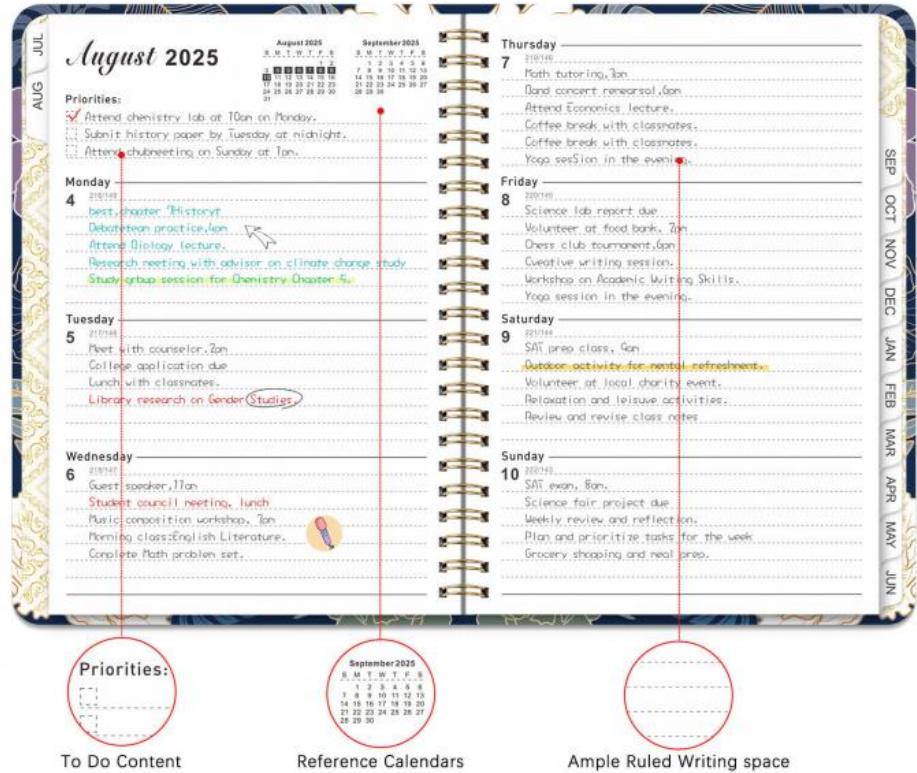 JUL
AUG
August 2025
August 2025
S M T W T F S
1 2
3 4 5 6 7 8 9
10 11 12 13 14 15 16
17 18 19 20 21 22 23
24 25 26 27 28 29 30
31
September 2025
S M T W T F S
1 2 3 4 5 6
7 8 9 10 11 12 13
14 15 16 17 18 19 20
21 22 23 24 25 26 27
28 29 30
Priorities:
Attend chemistry lab at 10am on Monday.
Submit history paper by Tuesday at midnight.
Attend chubmeeting on Sunday at 1pm.
Monday
4
216/149
best,chapter 7Historyt
Debateteam practice,4pm
Attend Biology lecture.
Research meeting with advisor on climate change study
Study group session for Chemistry Chapter 5.
Tuesday
5
217/148
Meet with counselor,2pm
College application due
Lunch with classmates.
Library research on Gender Studies.
Wednesday
6
218/147
Guest speaker,11am
Student council meeting, lunch
Music composition workshop, 7pm
Morning class:English Literature.
Complete Math problem set.
Thursday
7
219/146
Math tutoring,3pm
Band concert renearsal,6pm
Attend Economics lecture.
Coffee break with classmates.
Coffee break with classmates.
Yoga sesSion in the evening.
Friday
8
220/145
Science lab report due
Volunteer at food bank, 2pm
Chess club tournament,6pm
Cveative writing session.
Workshop on Academic Wuiting Skills.
Yoga session in the evening.
Saturday
9
221/144
SAT prep class, 9am
Outdoor activity for mental refreshment.
Volunteer at local charity event.
Relaxation and leisuve activities.
Review and revise class notes
Sunday
10
222/143
SAT exam, 8am.
Science fair project due
Weekly review and reflection.
Plan and prioritize tasks for the week
Grocery shopping and meal prep.
SEP
OCT
NOV
DEC
JAN
FEB
MAR
APR
MAY
JUN
Priorities:
September 2025
S M T W T F S
1 2 3 4 5 6
7 8 9 10 11 12 13
14 15 16 17 18 19 20
21 22 23 24 25 26 27
28 29 30
To Do Content
Reference Calendars
Ample Ruled Writing space